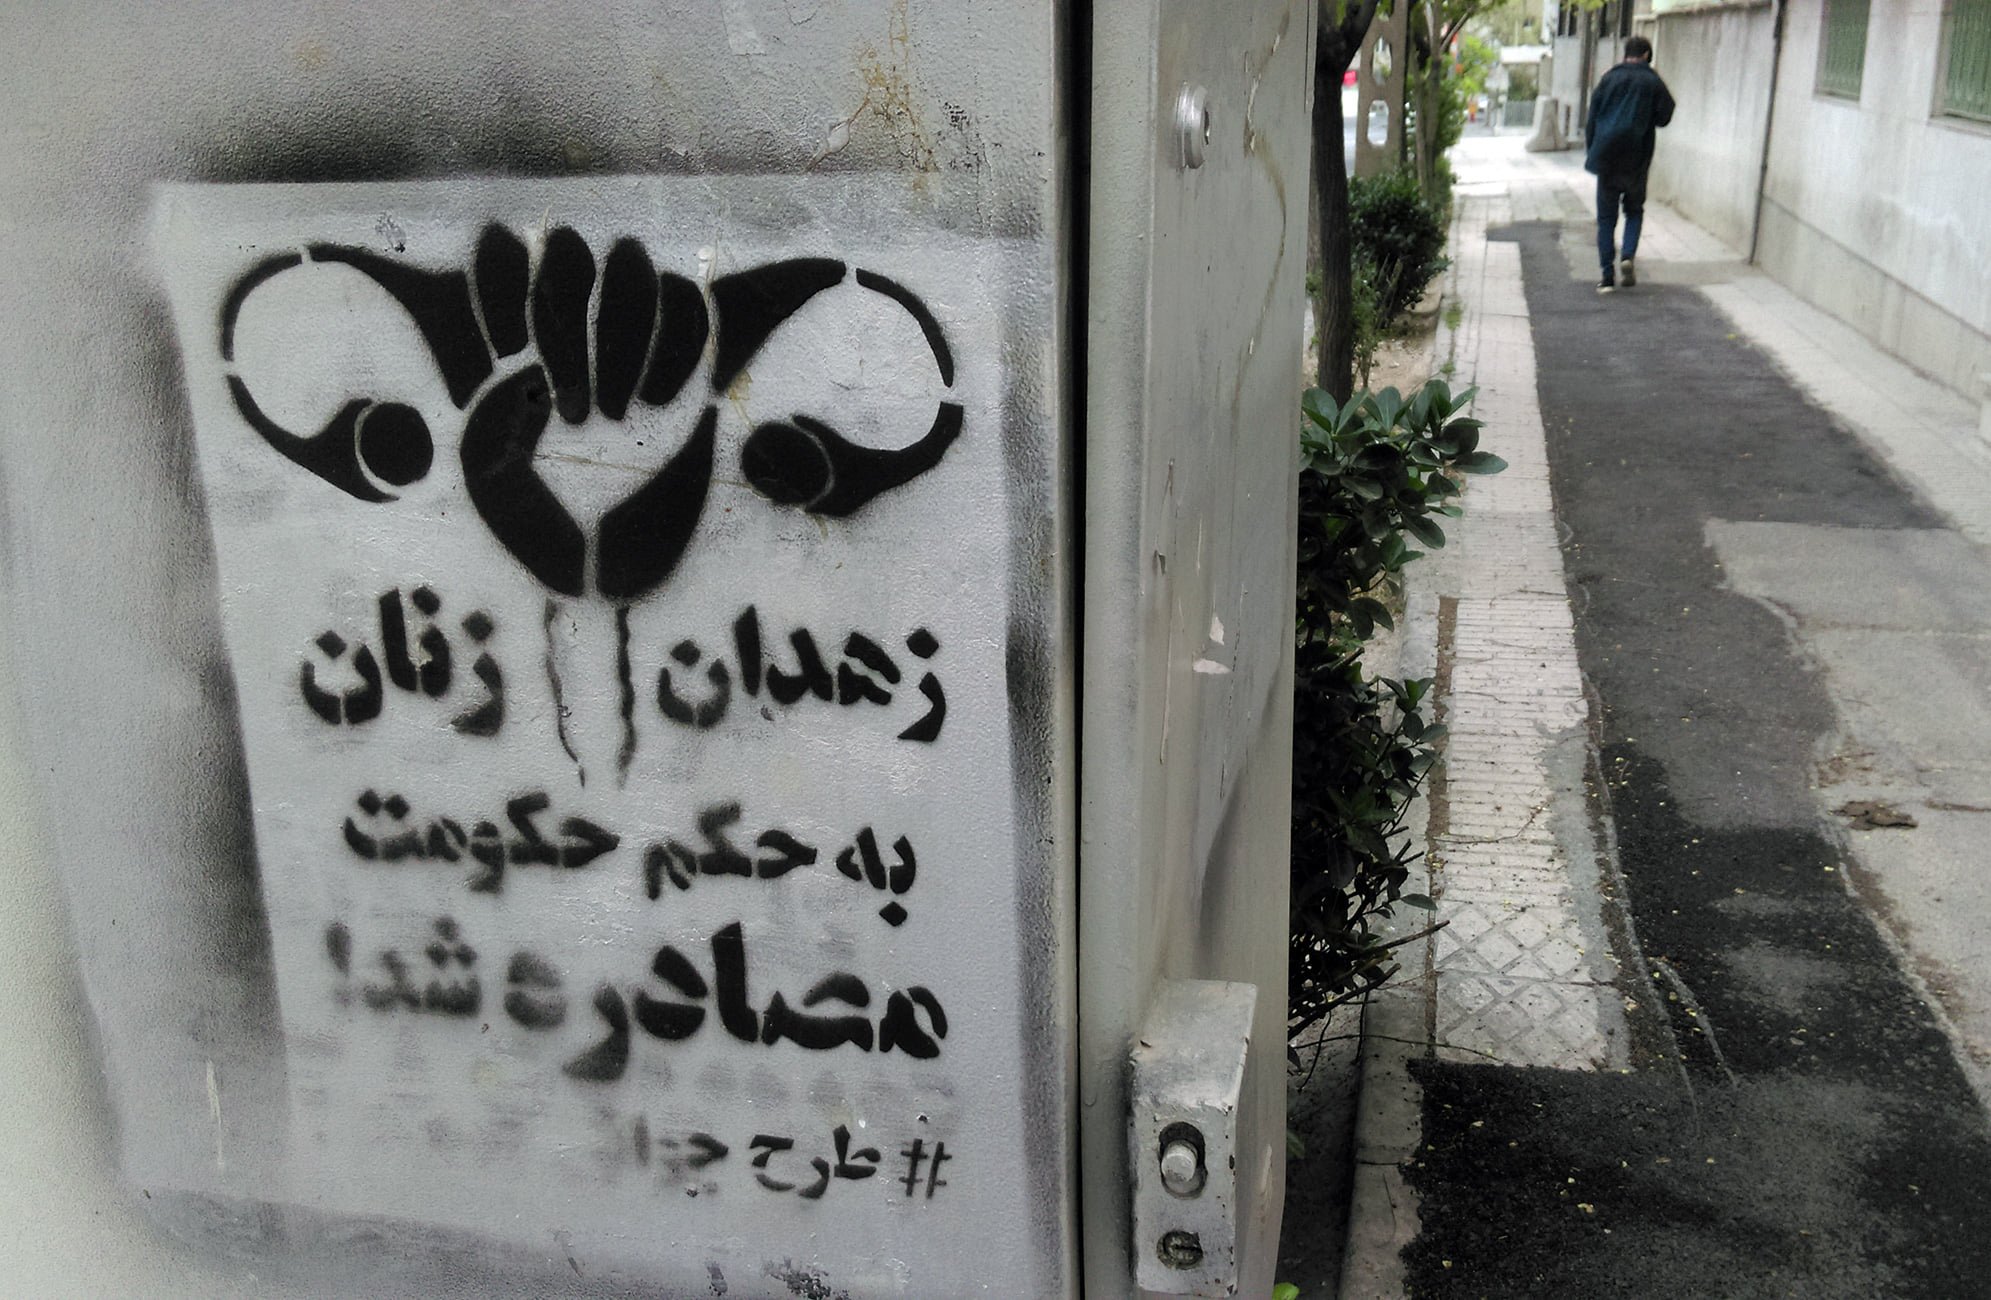 زهدان زنان
به حکم حکومت
مصادره شد!
#طرح